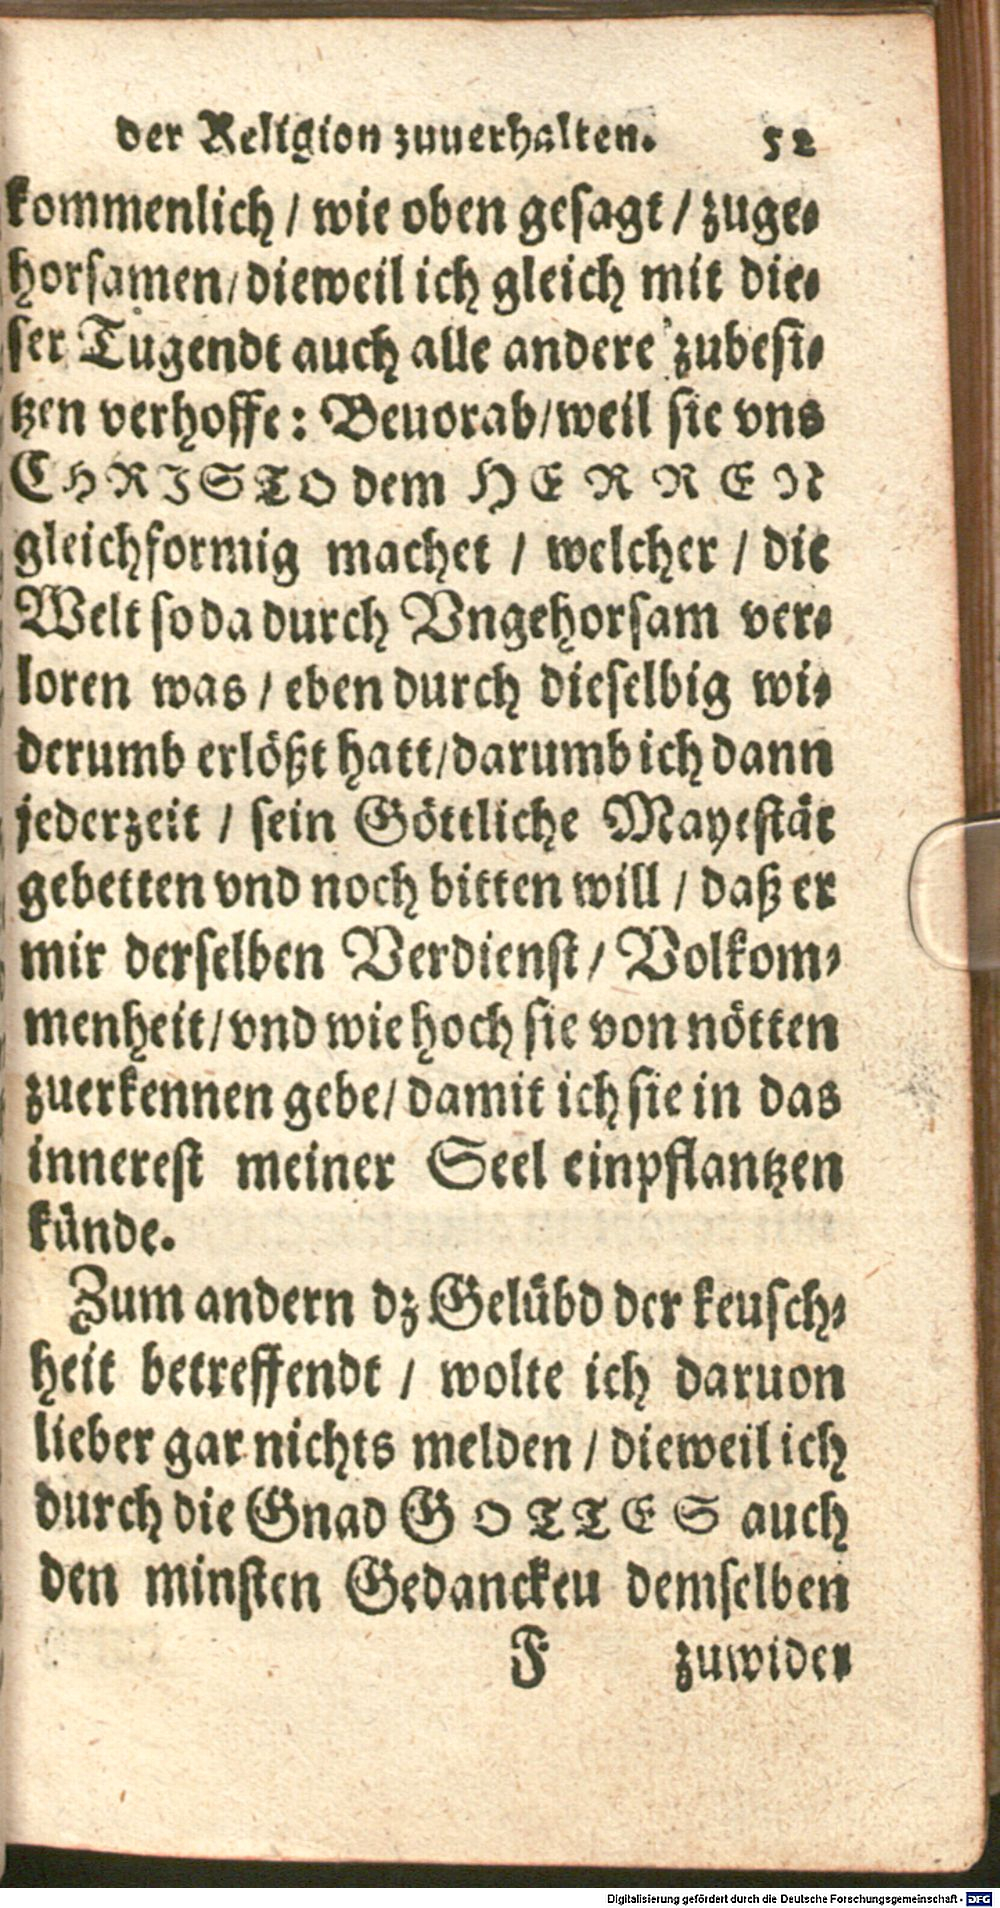 der Religion zuuerhalten. 52
kommenlich / wie oben gesagt / zuge-
horsamen / dieweil ich gleich mit die-
ser Tugendt auch alle andere zubesi-
tzen verhoffe: Beuorab / weil sie vns
CHRISTO dem HERREN
gleichformig machet / welcher / die
Welt so da durch Vngehorsam ver-
loren was / eben durch dieselbig wi-
derumb erlößt hatt / darumb ich dann
jederzeit / sein Göttliche Mayestät
gebetten vnd noch bitten will / daß er
mir derselben Verdienst / Volkom-
menheit / vnd wie hoch sie von nötten
zuerkennen gebe / damit ich sie in das
innerest meiner Seel einpflantzen
künde.
Zum andern dz Gelübd der keusch-
heit betreffendt / wolte ich daruon
lieber gar nichts melden / dieweil ich
durch die Gnad GOTTES auch
den minsten Gedanckeu demselben
F zuwider
Digitalisierung gefördert durch die Deutsche Forschungsgemeinschaft - DFG